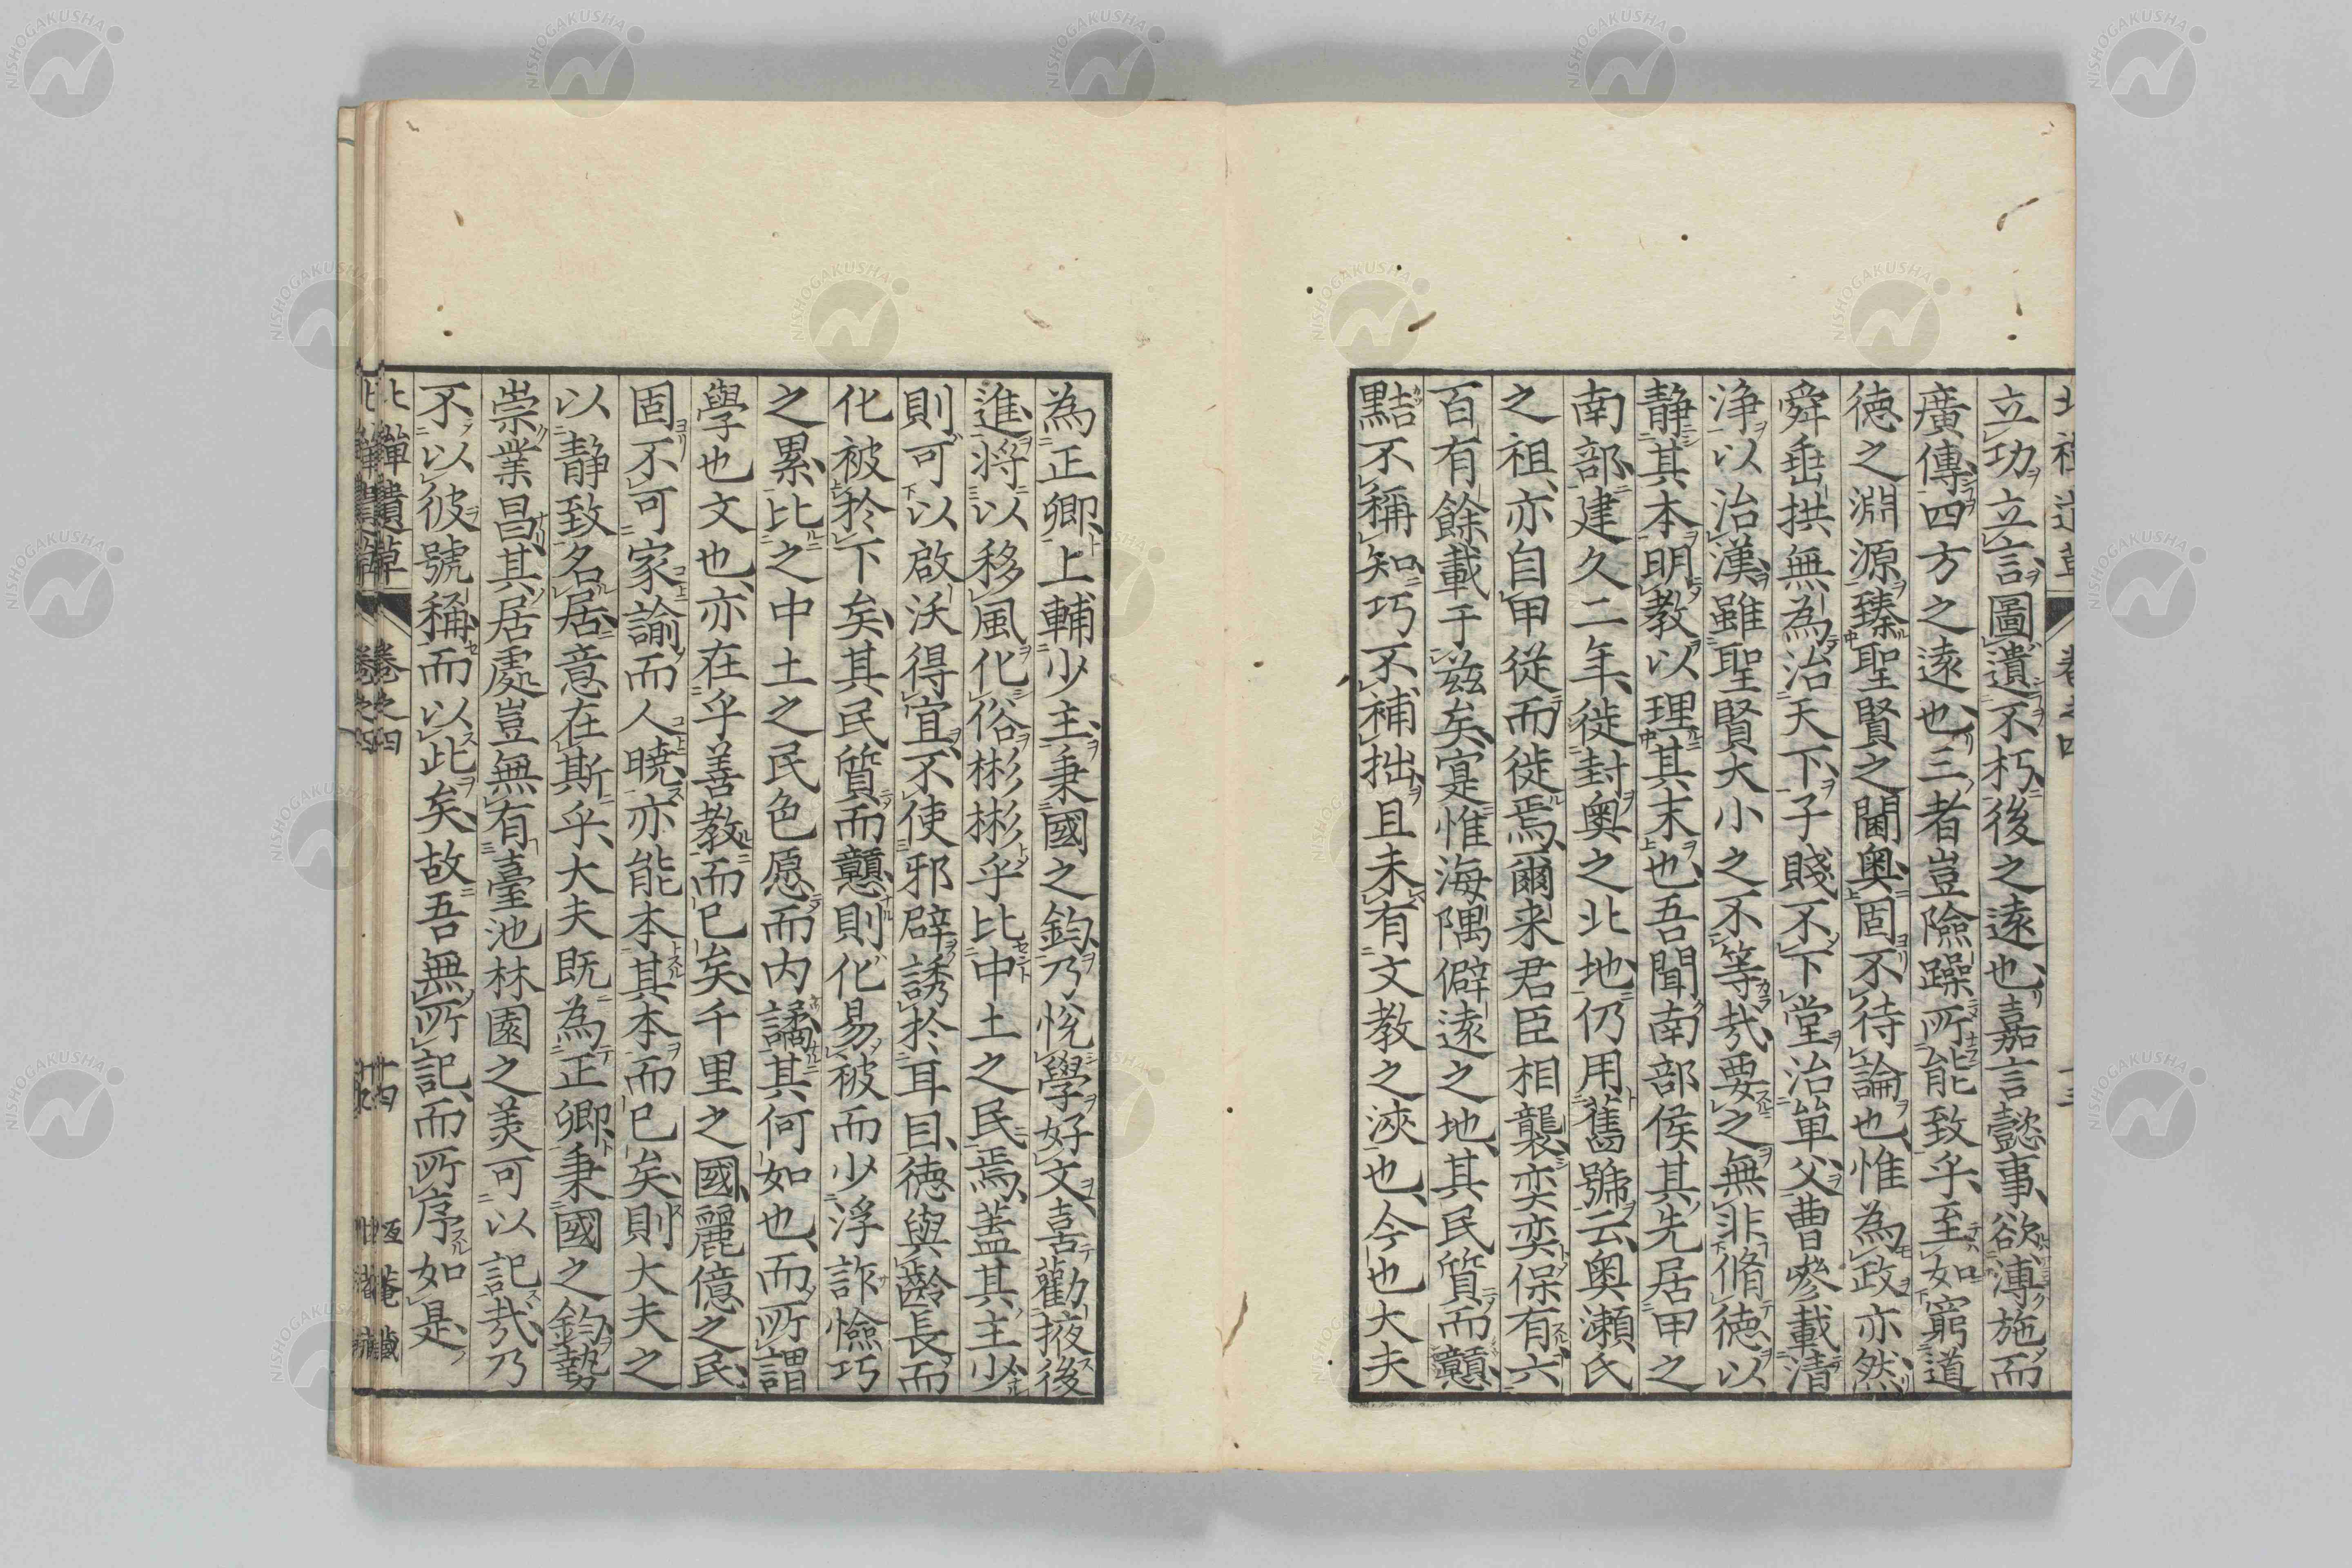 立功立言圖遺不朽後之遠也嘉言懿事欲溥施而
廣傳四方之遠也三者豈險躁所能致乎至如窮道
徳之淵源臻聖賢之閫奧固不待論也惟為政亦然
舜垂拱無為治天下子賤不下堂治單父曹參載清
浄以治漢雖聖賢大小之不等哉要之無非脩徳以
静其本明教以理其末也吾聞南部侯其先居甲之
南部建久二年徙封奧之北地仍用舊號云奥瀬氏
之祖亦自甲従而徙焉爾来君臣相襲奕奕保有六
百有餘載于兹矣寔惟海隅僻遠之地其民質而戇
黠不稱知巧不補拙且未有文教之浹也今也大夫
為正卿上輔少主秉國之鈞乃悅學好文喜勸掖後
進将以移風化俗彬彬乎比中土之民焉蓋其主少
則可以啟沃得宜不使邪辟誘於耳目徳與齡長而
化被於下矣其民質而戇則化易被而少浮詐憸巧
之累比之中土之民色愿而内譎其何如也而所謂
學也文也亦在乎善教而已矣千里之國麗億之民
固不可家諭而人曉亦能本其本而已矣則大夫之
以静致名居意在斯乎大夫既為正卿秉國之鈞勢
崇業昌其居處豈無有臺池林園之美可以記哉乃
不以彼號稱而以此矣故吾無所記而所序如是
北禪遺草 卷之四 十四
NISHOGAKUSHA